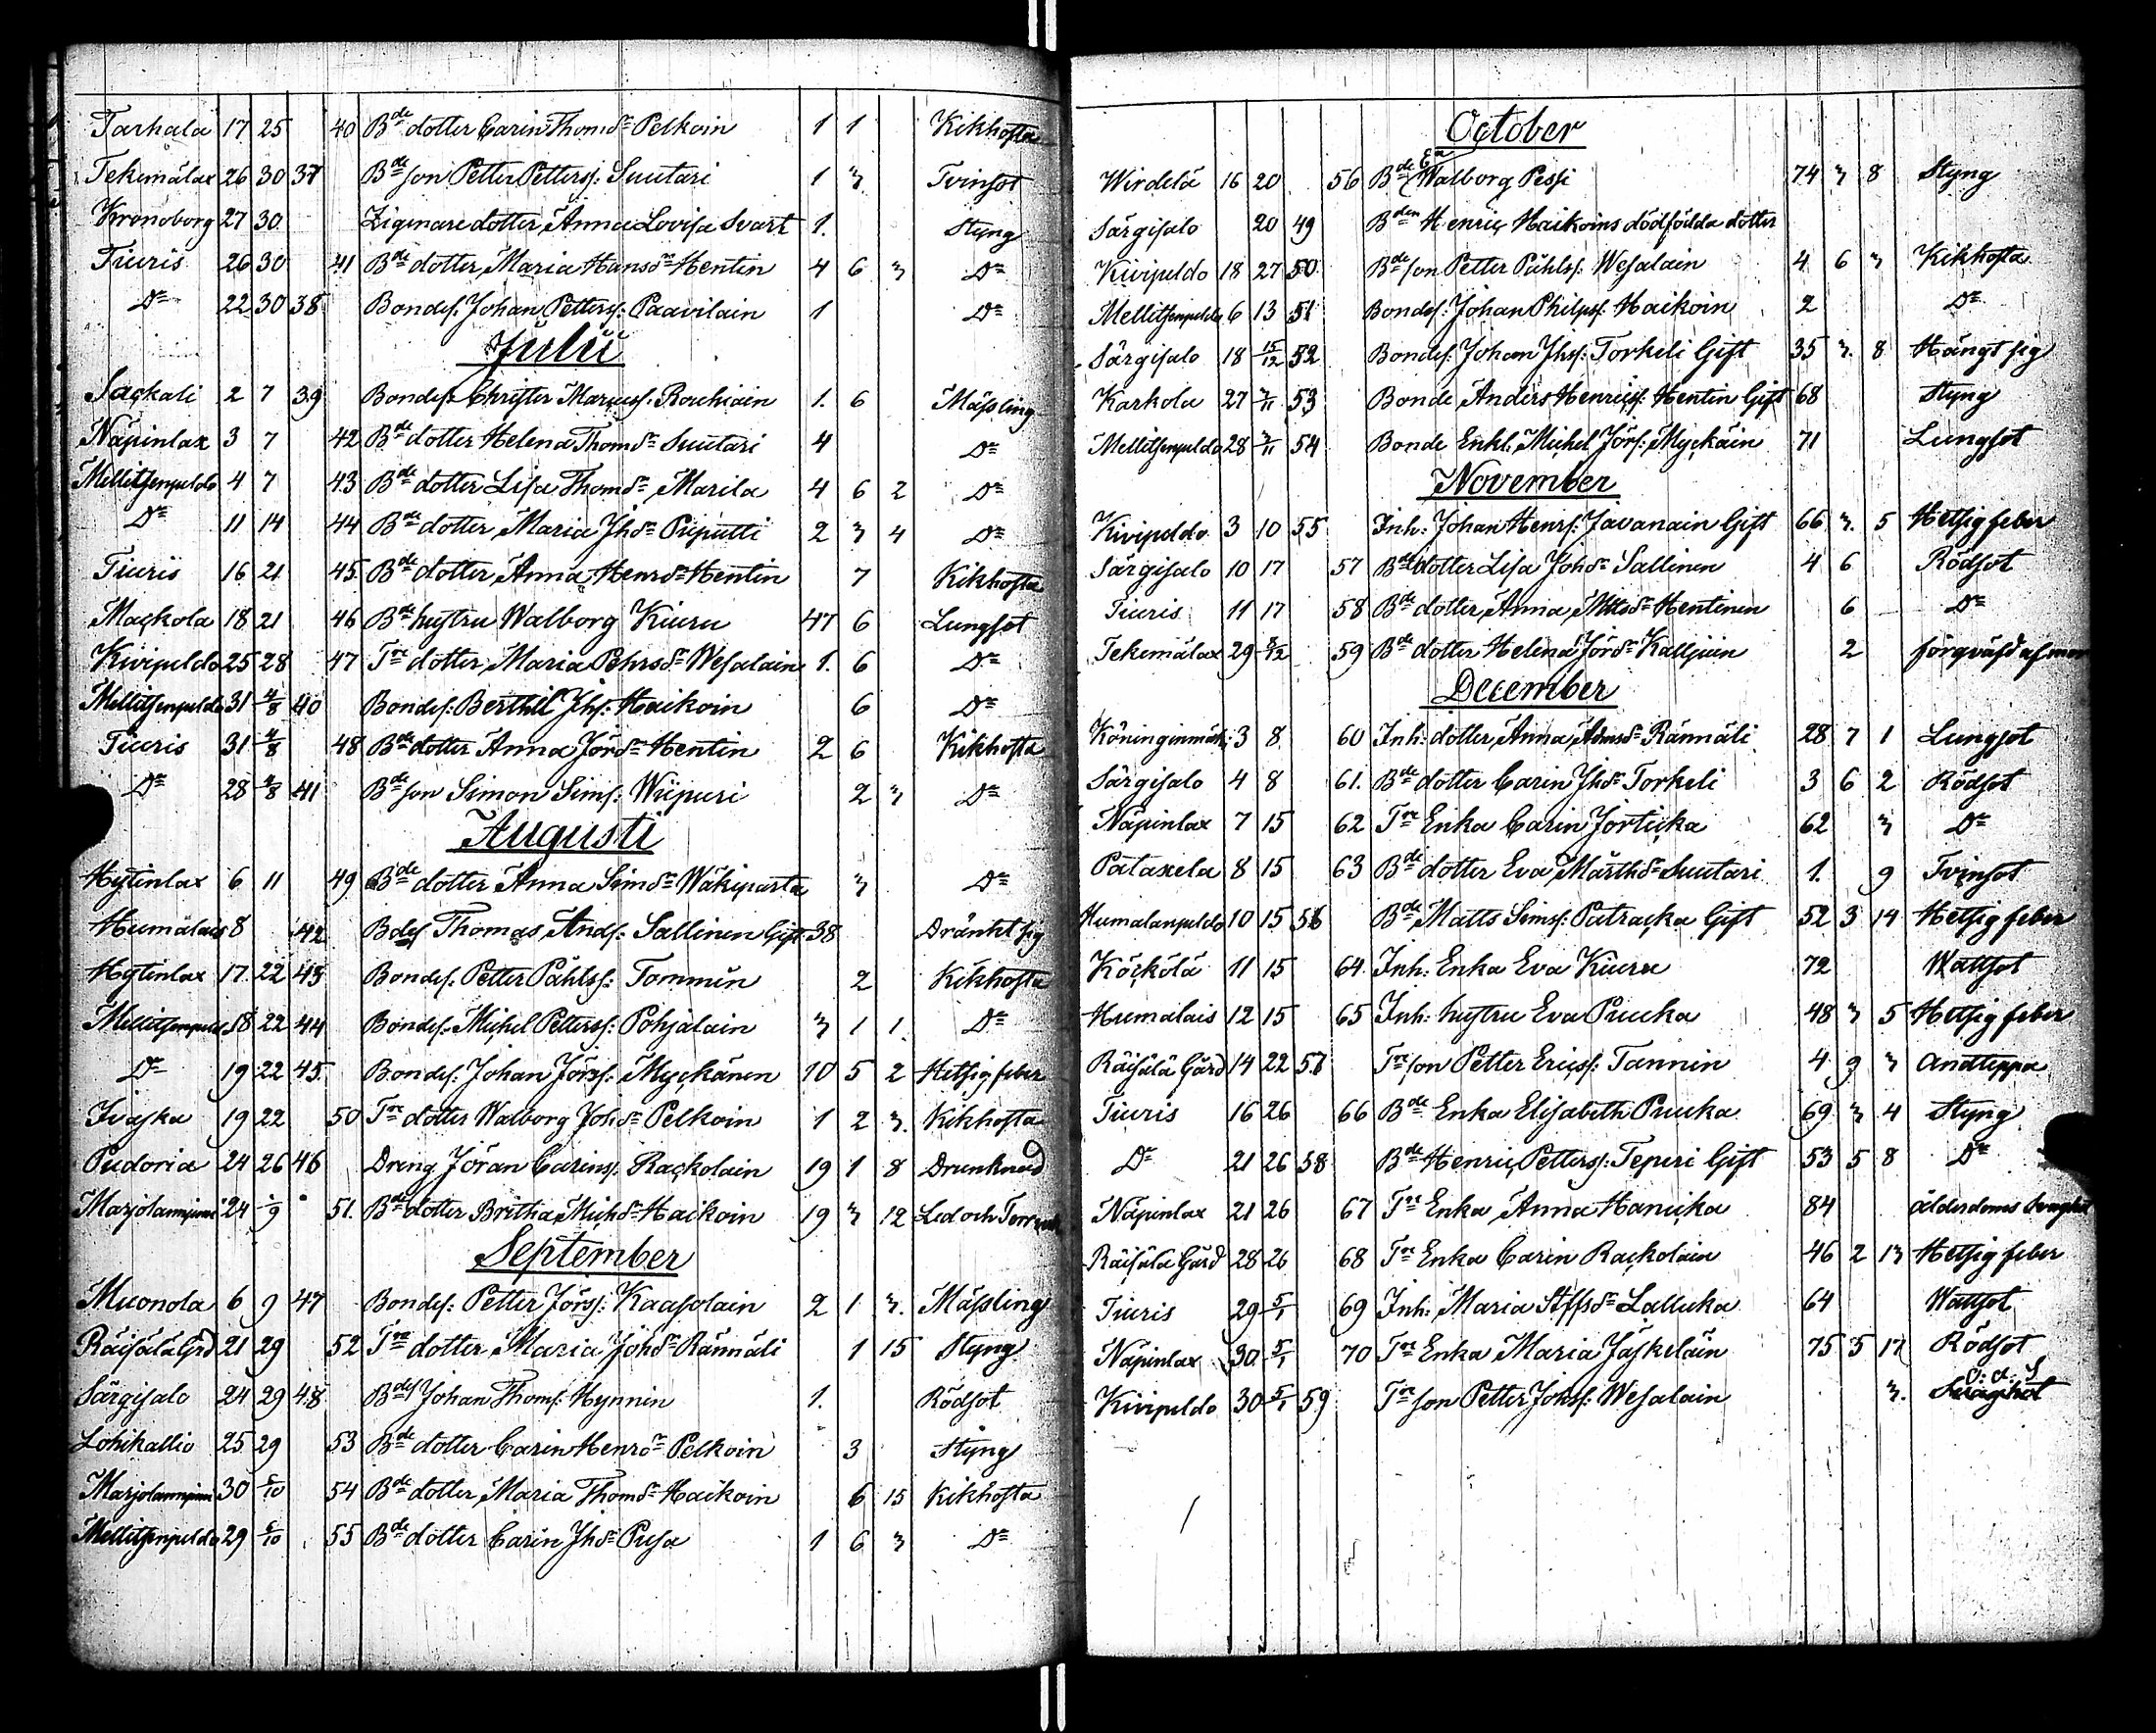 Tarkala 17 25 40 Bde dotter Carin Thomdr Pelkoin 1 1 Kikhosta
Tekemälax 26 30 37 Bde son Petter Petterss: Suutari 1 3 Tvinsot
Kronoborg 27 30 Zigenare dotter Anna Lovisa Svart 1. Styng
Tiuris 26 30 41 Bde dotter Maria Hansdr Hentin 4 6 3 Do
Do 22 30 38 Bondes: Johan Petterss: Paavilain 1 Do
Julii
Sackali 2 7 39 Bondes: Christer Marcuss: Rouhiain 1. 6 Mässling
Näpinlax 3 7 42 Bde dotter Helena Thomdr Suutari 4 Do
Mellitsenpeldo 4 7 43 Bde dotter Lisa Thomdr Marila 4 6 2 Do
Do 11 14 44 Bde dotter Maria Jhdr Puputti 2 3 4 Do
Tiuris 16 21 45 Bde dotter Anna Henrdr Hentin 7 Kikhosta
Mackola 18 21 46 Bde hustru Walborg Kiuru 47 6 Lungsot
Kivipeldo 25 28 47 Trp dotter Maria Pehrsdr Wesalain 1. 6 Do
Mellitsenpeldo 31 4/8 40 Bondes: Berthil Jhs: Haikoin 6 Do
Tiuris 31 4/8 48 Bde dotter Anna Jördr Hentin 2 6 Kikhosta
Do 28 4/8 41 Bde son Simon Sims: Wiipuri 2 3 Do
Augusti
Hytinlax 6 11 49 Bde dotter Anna Simdr Wäkiparta 3 Do
Humalais 8 42 Bdes Thomas Ands: Sallinen Gift 38 Dränkt sig
Hytinlax 17 22 43 Bondes: Petter Påhlss: Tommin 2 Kikhosta
Mellitsenpeld 18 22 44 Bondes: Michel Petterss: Pohjalain 3 1 1 Do
Do 19 22 45 Bondes: Johan Jörss: Myckänen 10 5 2 Hetsig feber
Ivaska 19 22 50 Tre dotter Walborg Johdr Pelkoin 1 2 3. Kikhosta
Pudoria 24 26 46 Dreng Jöran Carins: Rackolain 19 1 8 Drunknad
Marjolanniemi 24 9 51. Bde dotter Britha Michdr Haikoin 19 3 12 Led och Torrverk
September
Muonola 6 9 47 Bondes: Petter Jörss: Kaasolain 2 1 3. Mässling
Räisälä Grd 21 29 52 Tre dotter Maria Johdr Rännäli 1 15 Styng
Särgisalo 24 29 48 Bdes Johan Thoms: Hynnin 1. Rödsot
Lohikallio 25 29 53 Bde dotter Carin Henrdr Pelkoin 3 Styng
Marjolanniemi 30 6/10 54 Bde dotter Maria Thomdr Haikoin 6 15 Kikhosta
Mellitsenpeldo 29 6/10 55 Bde dotter Carin Jhdr Pusa 1 6 3 Do
October
Wirdelä 16 20 56 Bde Ea Walborg Pessi 74 3 8 Styng
Särgisalo 20 49 Bden Henric Haikoins dödfödda dotter
Kivipeldo 18 27 50 Bde son Petter Påhlss: Wesalain 4 6 3 Kikhosta
Mellitsenpeldo 6 13 51 Bondes: Johan Philpss: Haikoin 2 Do
Särgisalo 18 15/12 52 Bondes: Johan Jhss: Torkeli Gift 35 3. 8 Hängt sig
Karkola 27 3/11 53 Bonde Anders Henricss: Hentin Gift 68 Styng
Mellitsenpeldo 28 3/11 54 Bonde Enkl: Michel Jörs: Myckäin 71 Lungsot
November
Kivipeldo 3 10 55 Inh: Johan Henrs: Javanain Gift 66 3. 5 Hetsig feber
Särgisalo 10 17 57 Bde dotter Lisa Johdr Sallinen 4 6 Rödsot
Tiuris 11 17 58 Bde dotter Anna Mttsdr Hentinen 6 Do
Tekemälax 29 8/12 59 Bde dotter Helena Jördr Kalljuin 2 förqväfd af mor
December
3 8 60 Inh: dotter Anna Admsdr Rännäli 28 7 1 Lungsot
Särgisalo 4 8 61. Bde dotter Carin Jhdr Torkeli 3 6 2 Rödsot
Näpinlax 7 15 62 Tre Enka Carin Jörticka 62 3 Do
Pataxela 8 15 63 Bde dotter Eva Mårthdr Suutari 1. 9 Tvinsot
Humalanpeldo 10 15 56 Bde Matts Sims: Patracka Gift 52 3 14 Hetsig feber
Köckölä 11 15 64 Inh: Enka Eva Kiuru 72 Wattsot
Humalais 12 15 65 Inh: hustru Eva Puucka 48 3 5 Hetsig feber
Räisälä Gård 14 22 57 Tre son Petter Ericss: Tannin 4 9 3 Andtäppa
Tiuris 16 26 66 Bde Enka Elisabeth Puucka 69 3 4 Styng
Do 21 26 58 Bde Henric Petterss: Tepuri Gift 53 5 8 Do
Näpinlax 21 26 67 Tre Enka Anna Hanicka 84 ålderdoms svaghet
Räisälä Gård 28 26 68 Tre Enka Carin Rackolain 46 2 13 Hetsig feber
Tiuris 29 5/1 69 Inh: Maria Stffsdr Lallucka 64 Wattsot
Näpinlax 30 5/1 70 Tre Enka Maria Jäskeläin 75 5 17 Rödsot
Kivipeldo 30 5/1 59 Tre son Petter Johss: Wesalain 3.